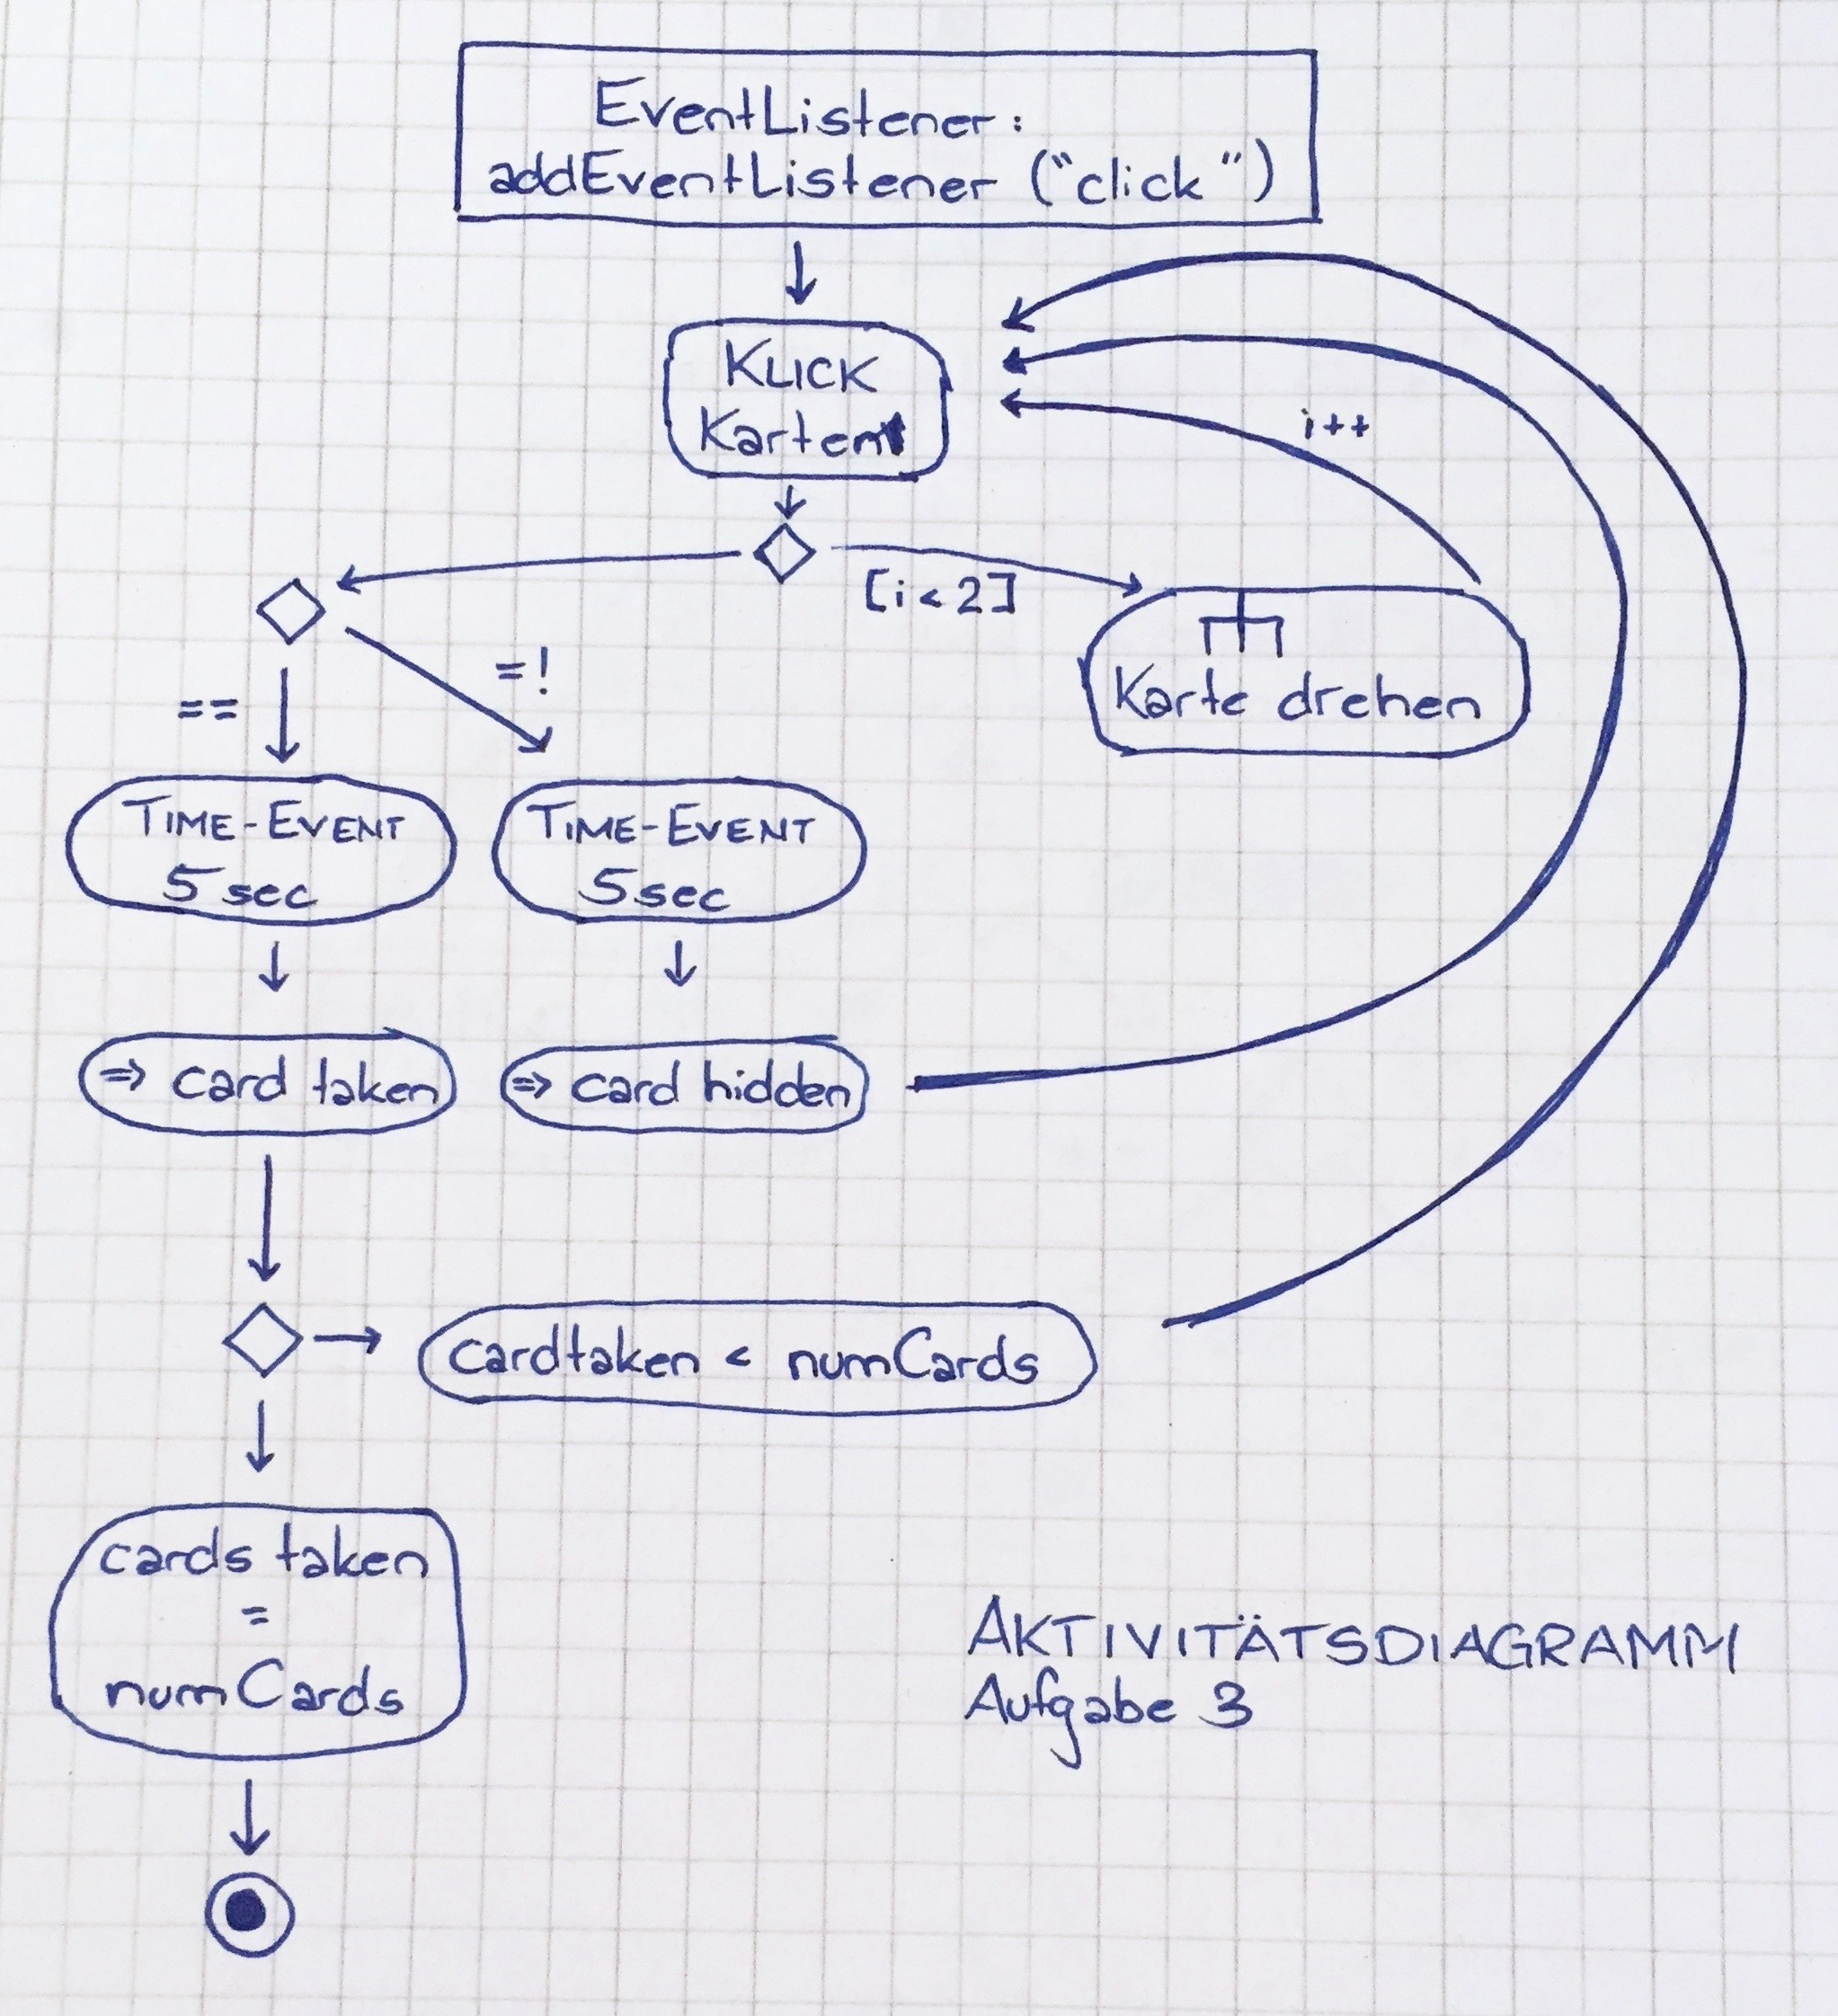 EventListener:
addEventListener ("click")
KLICK
Karten
i++
[i < 2]
Karte drehen
=!
==
TIME-EVENT
5 sec
TIME-EVENT
5 sec
=> card taken
=> card hidden
cardtaken < numCards
cards taken
=
numCards
AKTIVITÄTSDIAGRAMM
Aufgabe 3